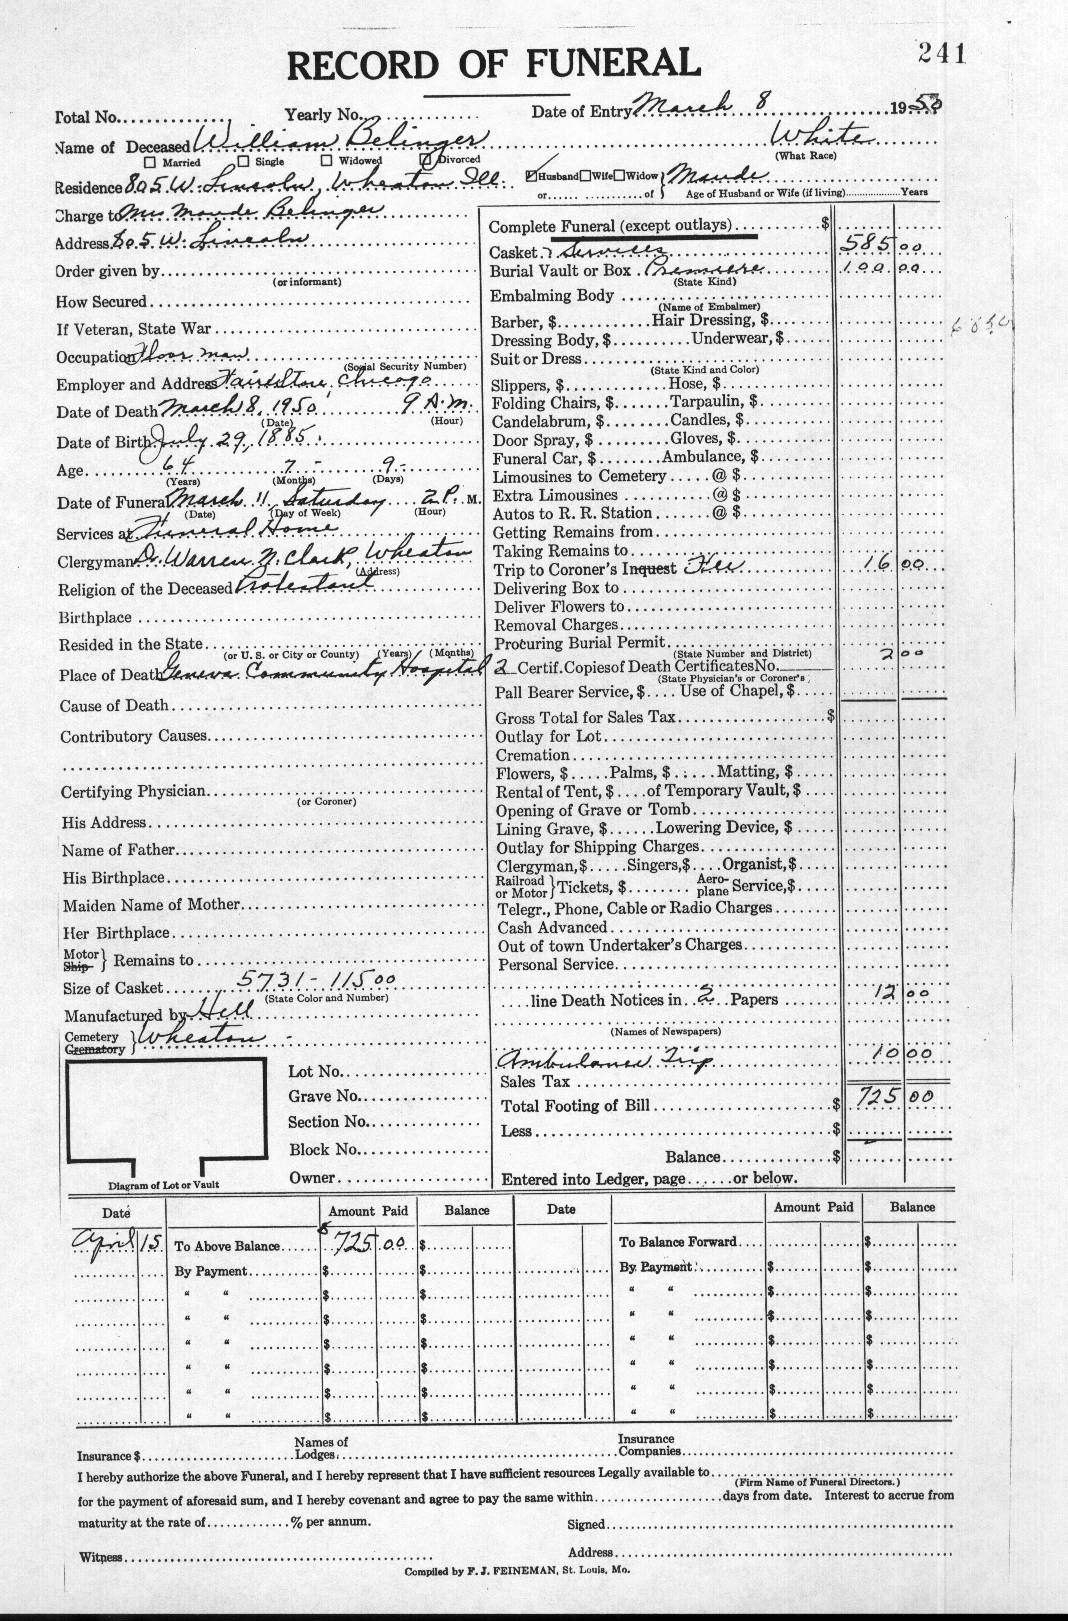 241
RECORD OF FUNERAL
Total No. Yearly No. Date of Entry March 8 1950
Name of Deceased William Belinger White
(What Race)
Married Single Widowed Divorced
Residence 805 W. Lincoln, Wheaton Ill. Husband Wife Widow or of } Maude
Age of Husband or Wife (if living) Years
Charge to Mrs Maude Belinger
Address 805 W. Lincoln
Order given by
(or informant)
How Secured
If Veteran, State War
Occupation Floor man
(Social Security Number)
Employer and Address Fair Store, Chicago
Date of Death March 8, 1950 9 A.M.
(Date) (Hour)
Date of Birth July 29, 1885.
Age 64 7 - 9 -
(Years) (Months) (Days)
Date of Funeral March 11, Saturday 2 P. M.
(Date) (Day of Week) (Hour)
Services at Funeral Home
Clergyman Dr. Warren N. Clark, Wheaton
(Address)
Religion of the Deceased Protestant
Birthplace
Resided in the State
(or U. S. or City or County) (Years) (Months)
Place of Death Geneva Community Hospital
Cause of Death
Contributory Causes
Certifying Physician
(or Coroner)
His Address
Name of Father
His Birthplace
Maiden Name of Mother
Her Birthplace
Motor Ship } Remains to
Size of Casket 5731 - 115 00
(State Color and Number)
Manufactured by Hell
Cemetery Crematory } Wheaton -
Lot No.
Grave No.
Section No.
Block No.
Owner
Diagram of Lot or Vault
Complete Funeral (except outlays) $
Casket & Services 585 00
Burial Vault or Box Premiere 100 00
(State Kind)
Embalming Body
(Name of Embalmer)
Barber, $ Hair Dressing, $
Dressing Body, $ Underwear, $
Suit or Dress
(State Kind and Color)
Slippers, $ Hose, $
Folding Chairs, $ Tarpaulin, $
Candelabrum, $ Candles, $
Door Spray, $ Gloves, $
Funeral Car, $ Ambulance, $
Limousines to Cemetery @ $
Extra Limousines @ $
Autos to R. R. Station @ $
Getting Remains from
Taking Remains to
Trip to Coroner's Inquest Fee 16 00
Delivering Box to
Deliver Flowers to
Removal Charges
Procuring Burial Permit
(State Number and District)
2 Certif. Copies of Death Certificates No. 2 00
(State Physician's or Coroner's)
Pall Bearer Service, $ Use of Chapel, $
Gross Total for Sales Tax $
Outlay for Lot
Cremation
Flowers, $ Palms, $ Matting, $
Rental of Tent, $ of Temporary Vault, $
Opening of Grave or Tomb
Lining Grave, $ Lowering Device, $
Outlay for Shipping Charges
Clergyman, $ Singers, $ Organist, $
Railroad or Motor } Tickets, $ Aeroplane Service, $
Telegr., Phone, Cable or Radio Charges
Cash Advanced
Out of town Undertaker's Charges
Personal Service
line Death Notices in 2 Papers 12 00
(Names of Newspapers)
Ambulance Trip 10 00
Sales Tax
Total Footing of Bill $ 725 00
Less $
Balance $
Entered into Ledger, page or below.
Date Amount Paid Balance Date Amount Paid Balance
April 15 To Above Balance $ 725 00 $ To Balance Forward $
By Payment $ $ By Payment $ $
" " $ $ " " $ $
" " $ $ " " $ $
" " $ $ " " $ $
" " $ $ " " $ $
" " $ $ " " $ $
" " $ $ " " $ $
Insurance $ Names of Lodges Insurance Companies
I hereby authorize the above Funeral, and I hereby represent that I have sufficient resources Legally available to
(Firm Name of Funeral Directors.)
for the payment of aforesaid sum, and I hereby covenant and agree to pay the same within days from date. Interest to accrue from
maturity at the rate of % per annum. Signed
Witness Address
Compiled by F. J. FEINEMAN, St. Louis, Mo.